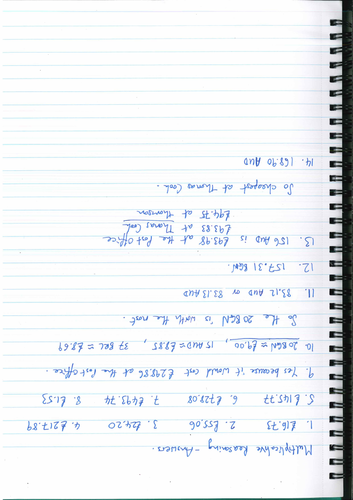 Multiplicative Reasoning - Answers.
1. £16.73 2. £55.06 3. £24.20 4. £217.89
5. £145.77 6. £729.08 7. £493.74 8. £1.53
9. Yes because it would cost £298.86 at the Post office.
10. 20 BGN = £9.00, 15 AUD = £8.85 37 BRL = £8.69
So the 20 BGN is worth the most.
11. 83.12 AUD or 83.13 AUD
12. 157.31 BGN.
13. 156 AUD is £93.98 at the Post office
£93.83 at Thomas Cook
£94.75 at thomson
So cheapest at Thomas Cook.
14. 168.90 AUD